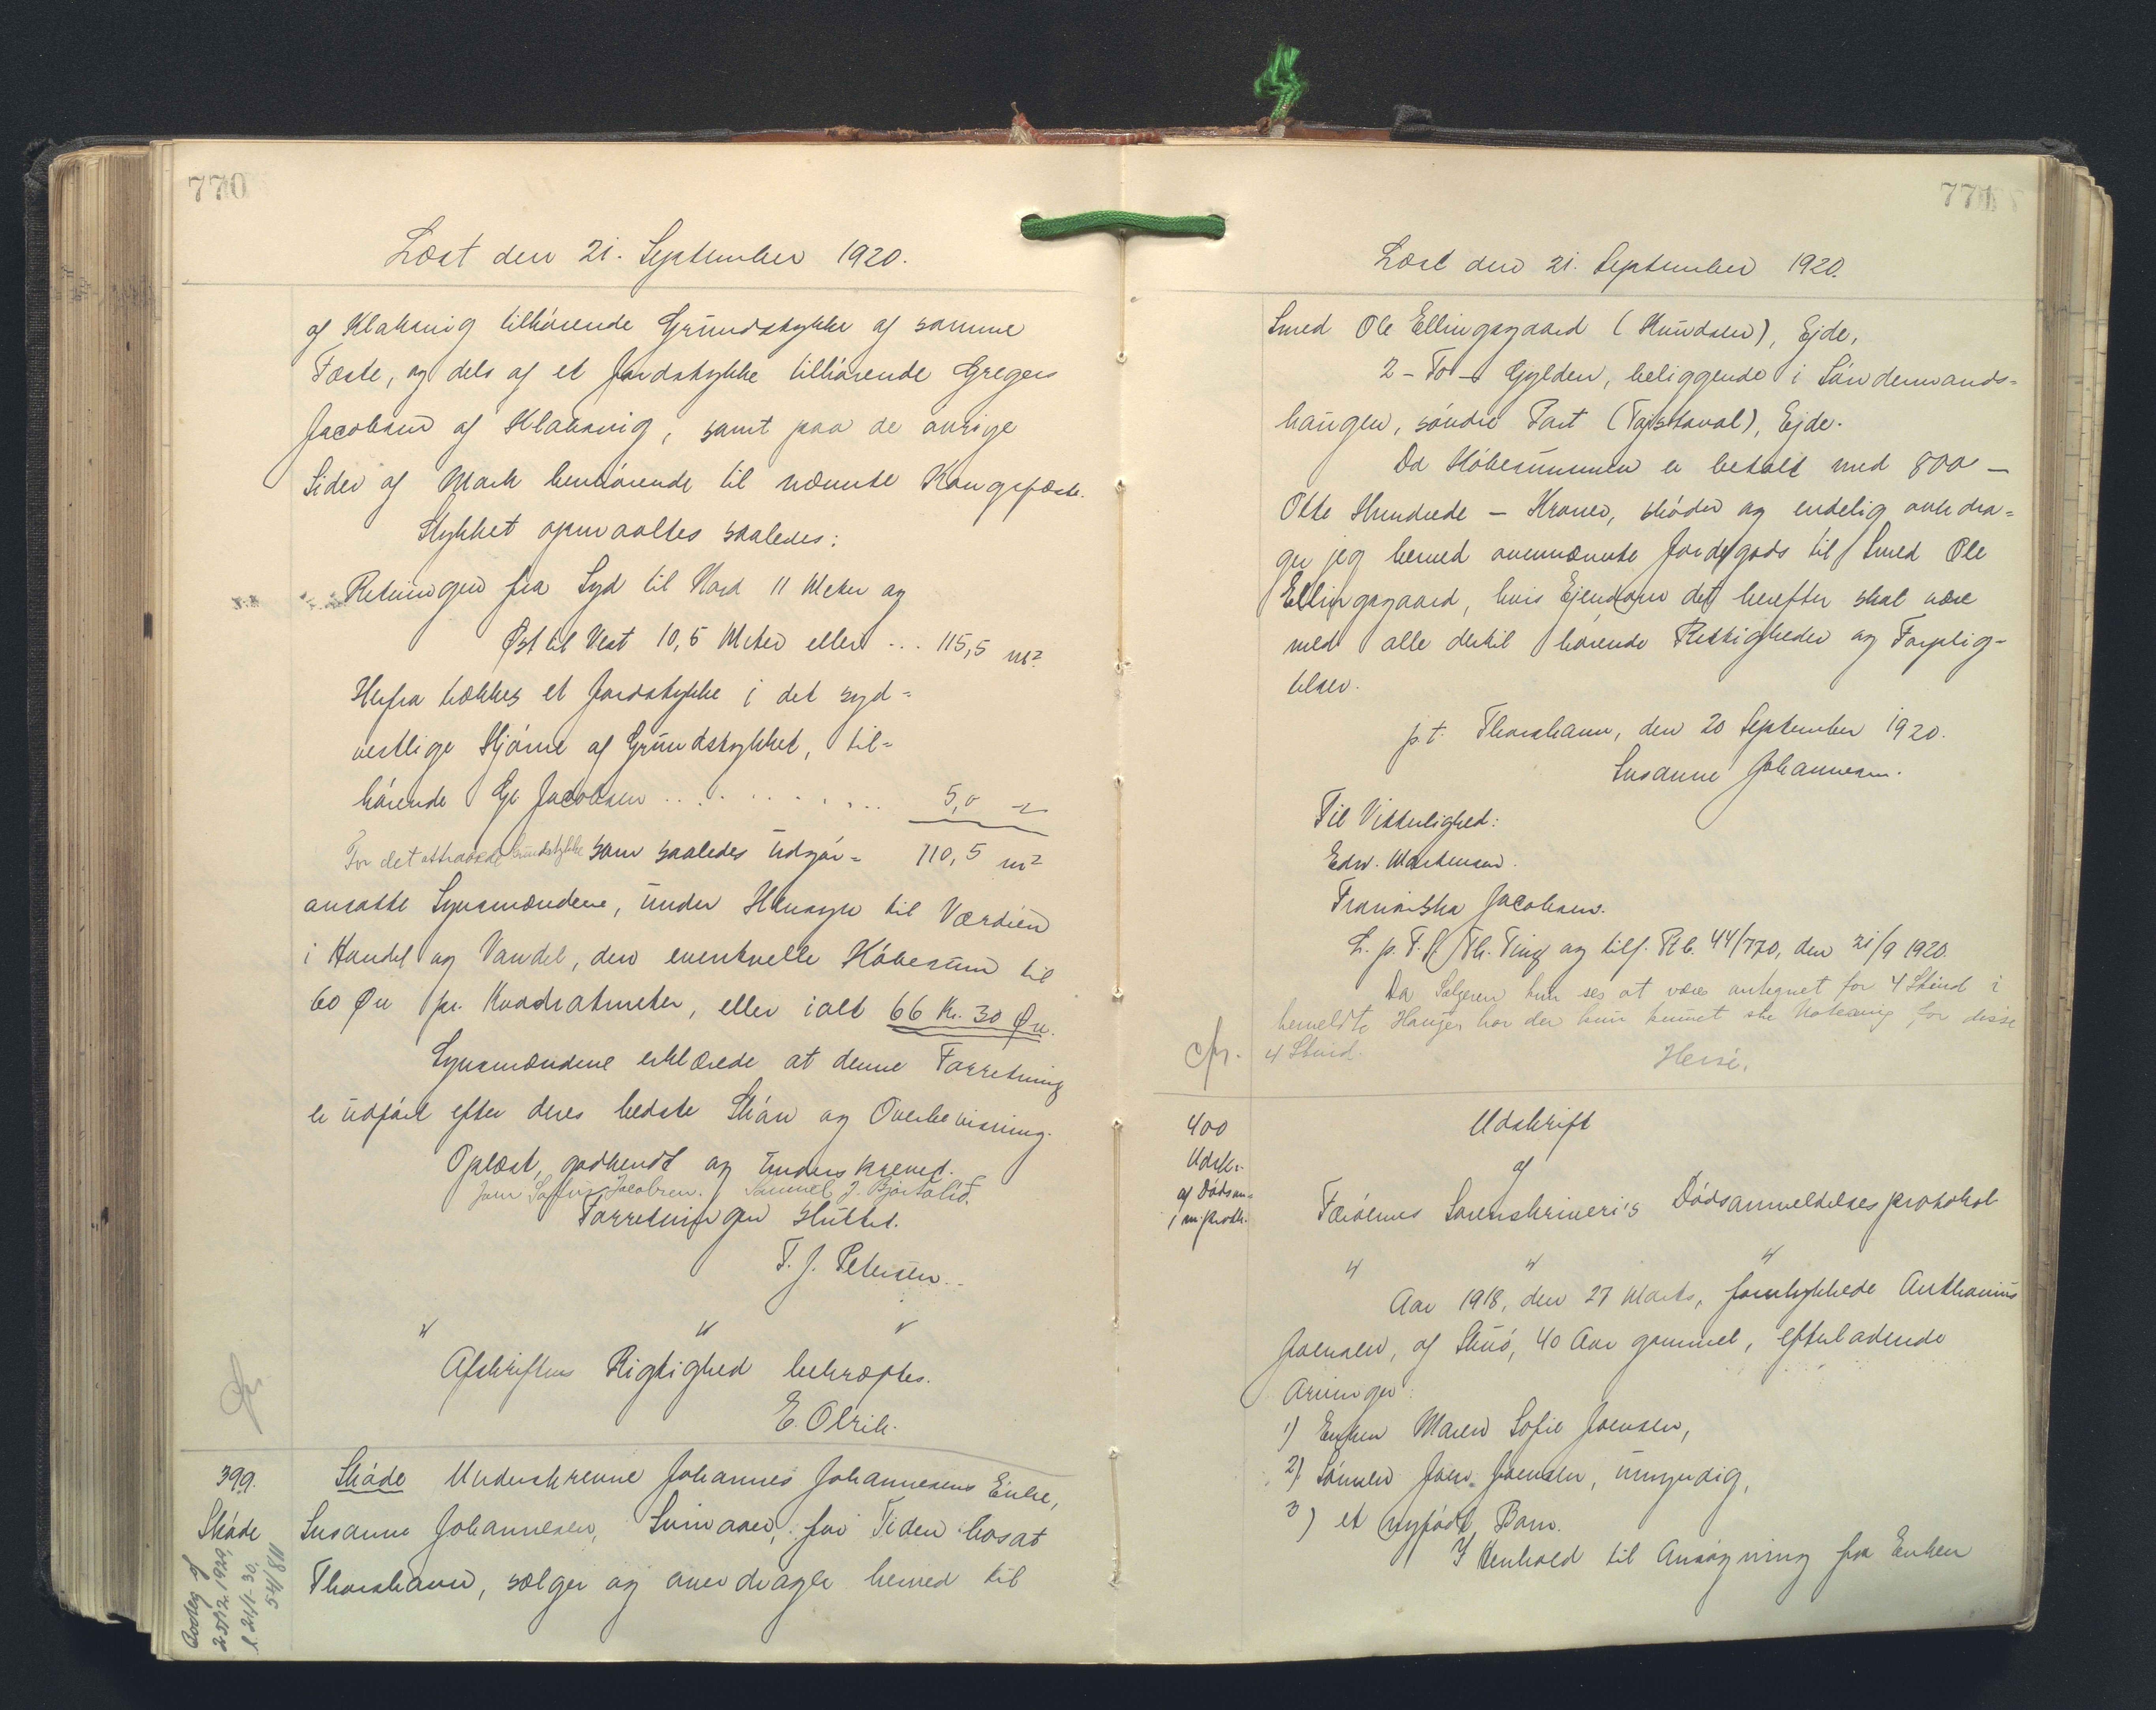 770
Læst den 21. September 1920.
af Klaksvig tilhørende Grundstykke af samme
Fæste, og dels af et Jordstykke tilhørende Gregers
Jacobsen af Klaksvig, samt paa de øvrige
Sider af Mark henhørende til nævnte Kongsfæste.
Stykket opmaaltes saaledes:
Retningen fra Syd til Nord 11 Meter og
Øst til Vest 10,5 Meter eller ... 115,5 m²
Herfra trækkes et Jordstykke i det syd=
vestlige Hjørne af Grundstykket, til=
hørende Gr. Jacobsen .......... 5,0 -
For det attraaede Grundstykke som saaledes udgør= 110,5 m²
ansatte Synsmændene, under Hensyn til Værdien
i Handel og Vandel, den eventuelle Købesum til
60 Øre pr. Kvadratmeter, eller ialt 66 Kr. 30 Øre.
Synsmændene erklærede at denne Forretning
er udført efter deres bedste Skøn og Overbevisning.
Oplæst, godkendt og underskrevet.
Joen Saftus Jacobsen. Samuel J. Bjartalid.
Forretningen sluttet.
T. J. Petersen.
" " "
Afskriftens Rigtighed bekræftes.
E. Olrik.
cfr.
399.
Skøde
Skøde Underskrevne Johannes Johannesens Enke,
Susanne Johannesen, for Tiden bosat
Thorshavn, sælger og overdrager herved til
25/12 1929,
l. 21/1-30,
54/811
771
Læst den 21. September 1920.
Smed Ole Ellingsgaard (Knudsen), Ejde,
2 - To - Gylden, beliggende i Søndermands=
haugen, søndre Part, Ejde.
Da Købesummen er betalt med 800 -
Otte Hundrede - Kroner, skøder og endelig overdra=
ger jeg herved ovennævnte Jordegods til Smed Ole
Ellingsgaard, hvis Ejendom det herefter skal være
med alle dertil hørende Rettigheder og Forplig-
telser.
p.t. Thorshavn, den 20 September 1920.
Susanne Johannesen.
Til Vitterlighed:
Edw. Mortensen.
Franciska Jacobsen.
L. p. F. f. Th. Ting og tilf. Rb. 44/770, den 21/9 1920.
Da Sælgeren kun ses at være antegnet for 4 Skind i
bemeldte Hauge, har der kun kunnet ske Notering for disse
4 Skind.
cfr.
400
Udskr.
af Dødsan=
m. protk.
Udskrift
af
Færøernes Sorenskriveri's Dødsanmeldelsesprotokol
" " "
Aar 1918, den 27 Marts, forulykkede Anthonius
Joensen, af Skuø, 40 Aar gammel, efterladende
Arvinger:
1) Enken Maren Sofie Joensen,
2) Sønnen Joen Joensen, umyndig,
3) et nyfødt Barn.
I Henhold til Ansøgning fra Enken